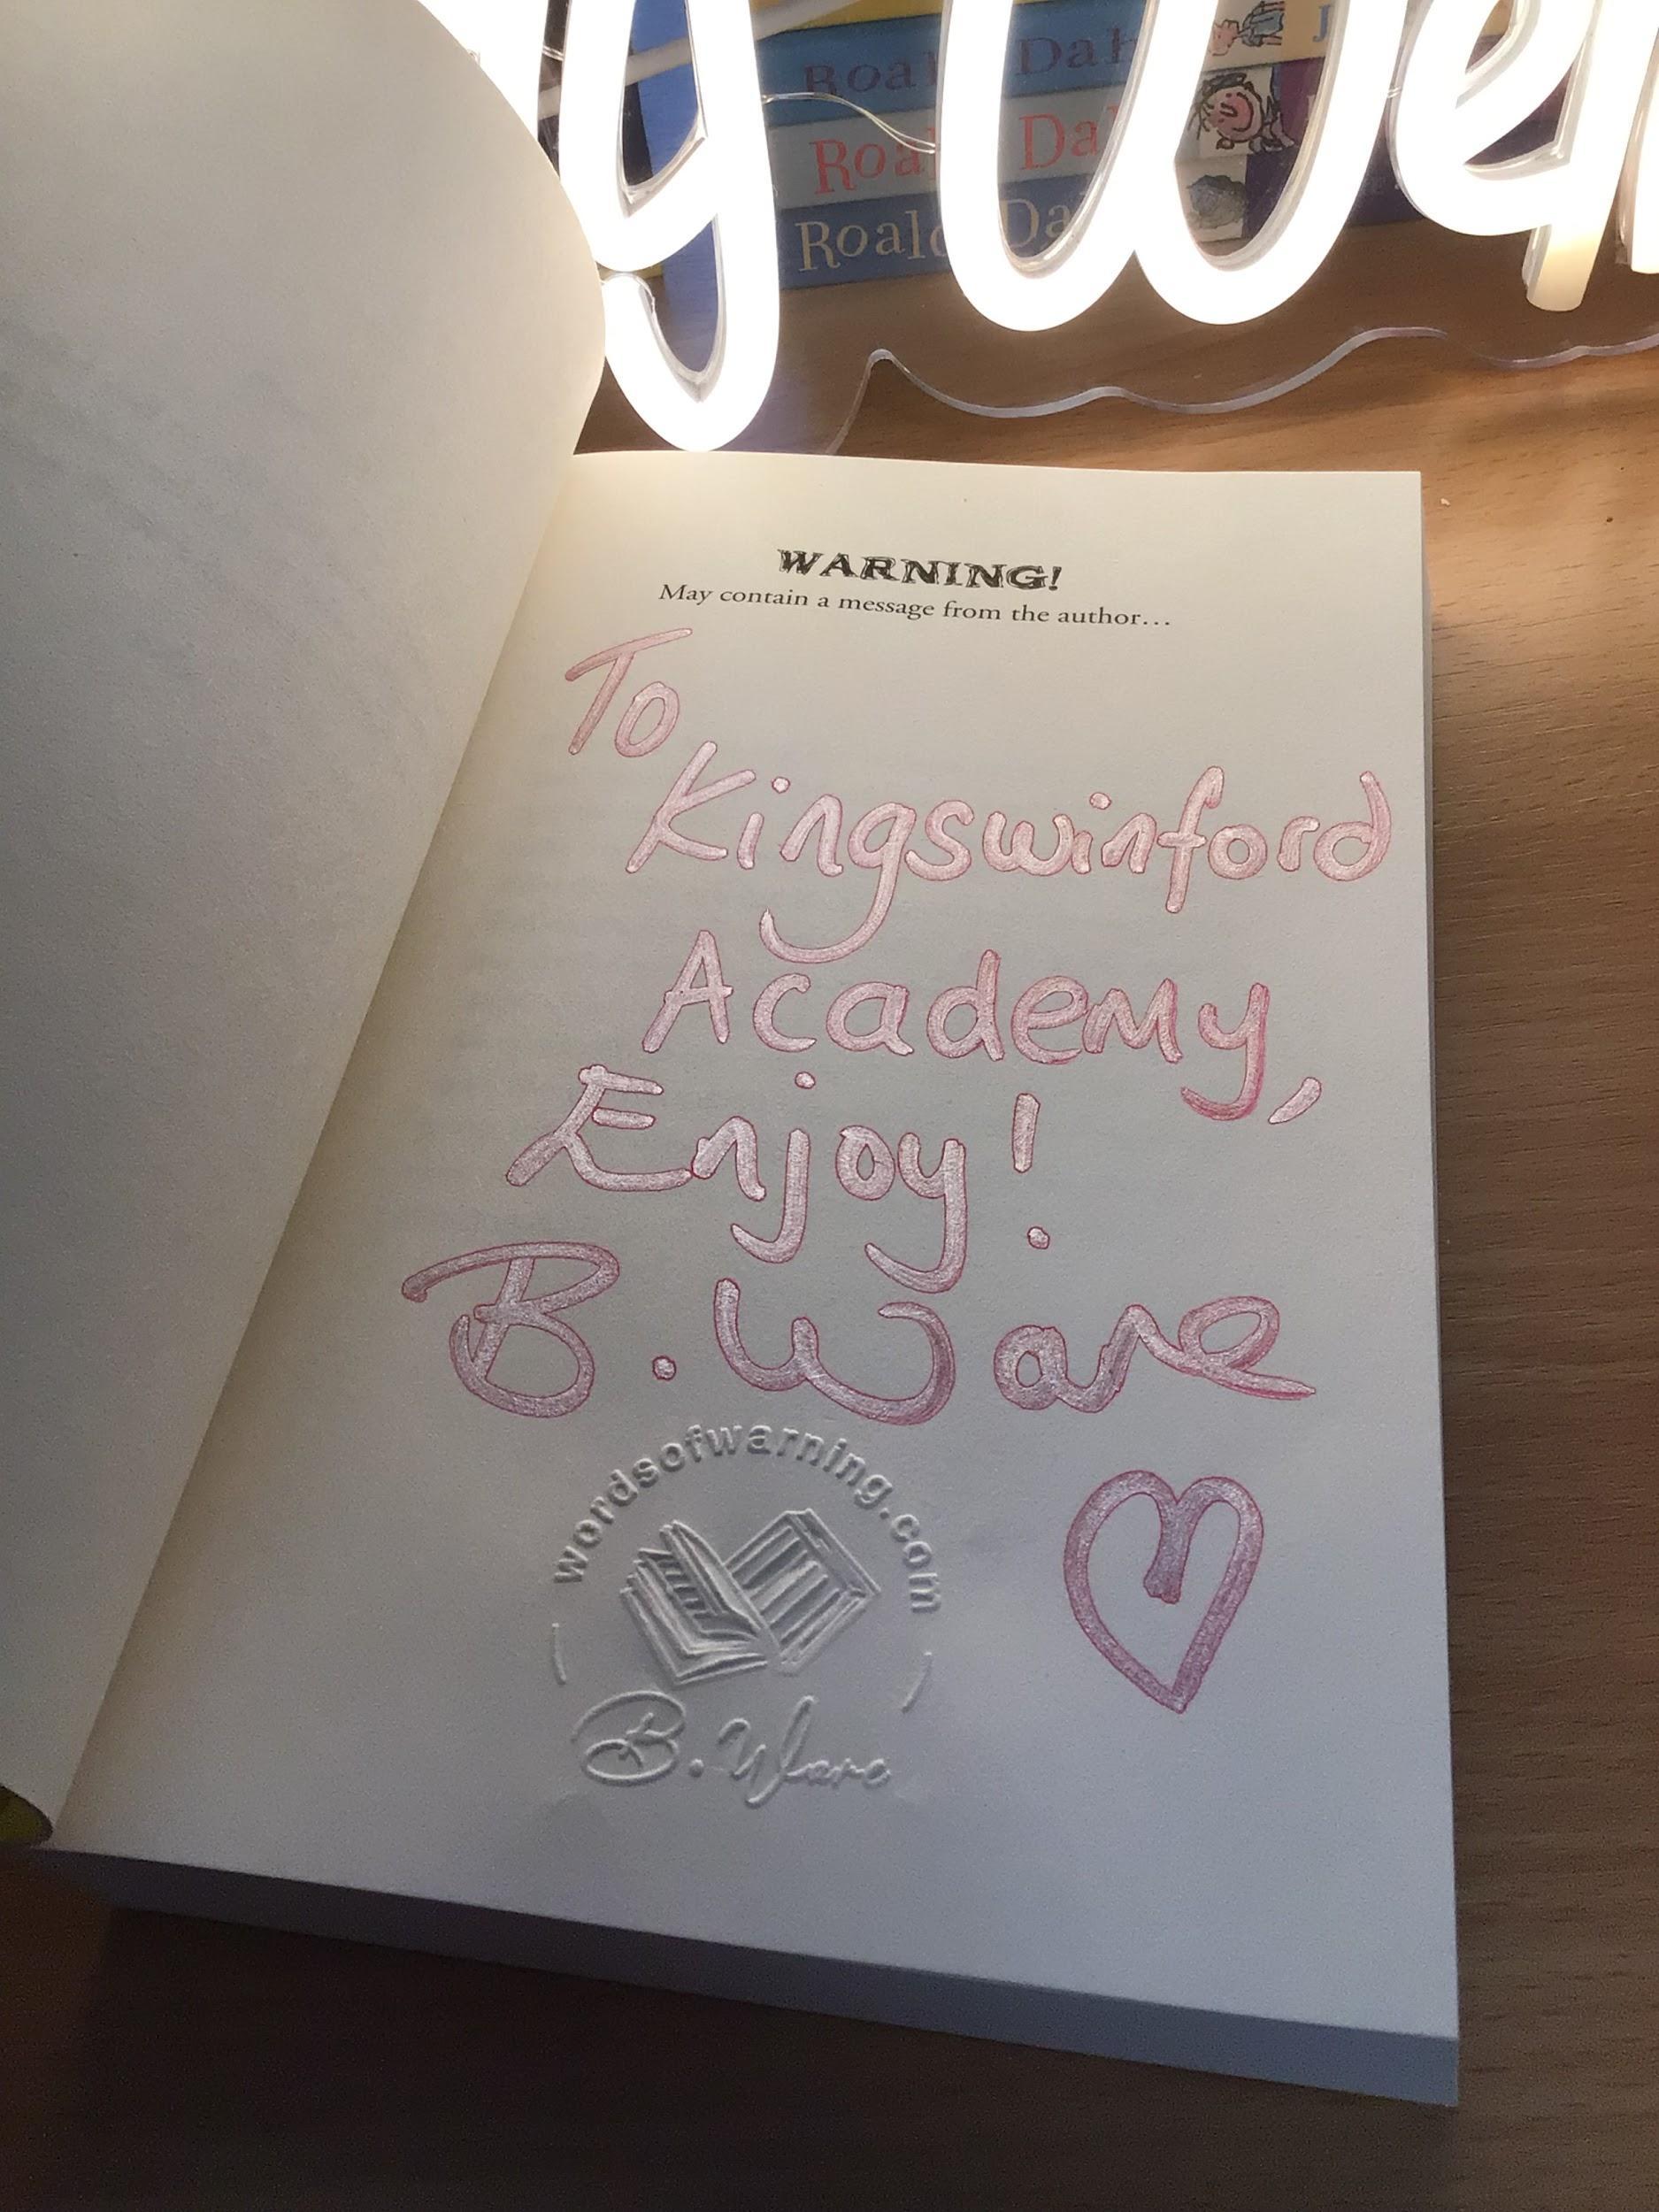 Roald Dahl
Roald Dahl
Roald Dahl
WARNING!
May contain a message from the author...
To
Kingswinford
Academy,
Enjoy!
B. Ware
wordsofwarning.com
B. Ware